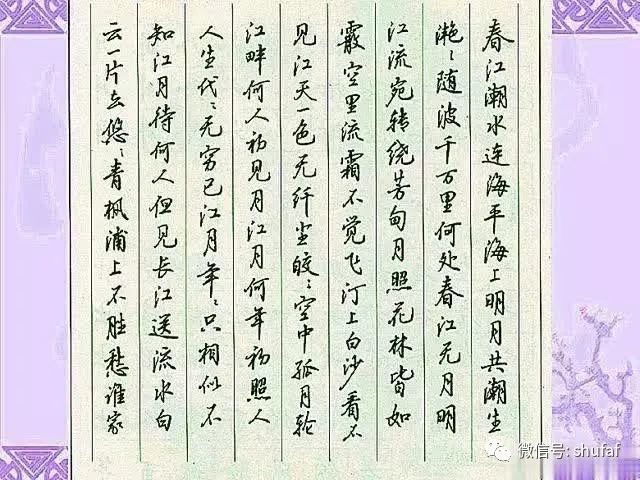 春江潮水连海平海上明月共潮生
滟〻随波千万里何处春江无月明
江流宛转绕芳甸月照花林皆如
霰空里流霜不觉飞汀上白沙看不
见江天一色无纤尘皎〻空中孤月轮
江畔何人初见月江月何年初照人
人生代〻无穷已江月年〻只相似不
知江月待何人但见长江送流水白
云一片去悠〻青枫浦上不胜愁谁家
微信号: shufaf